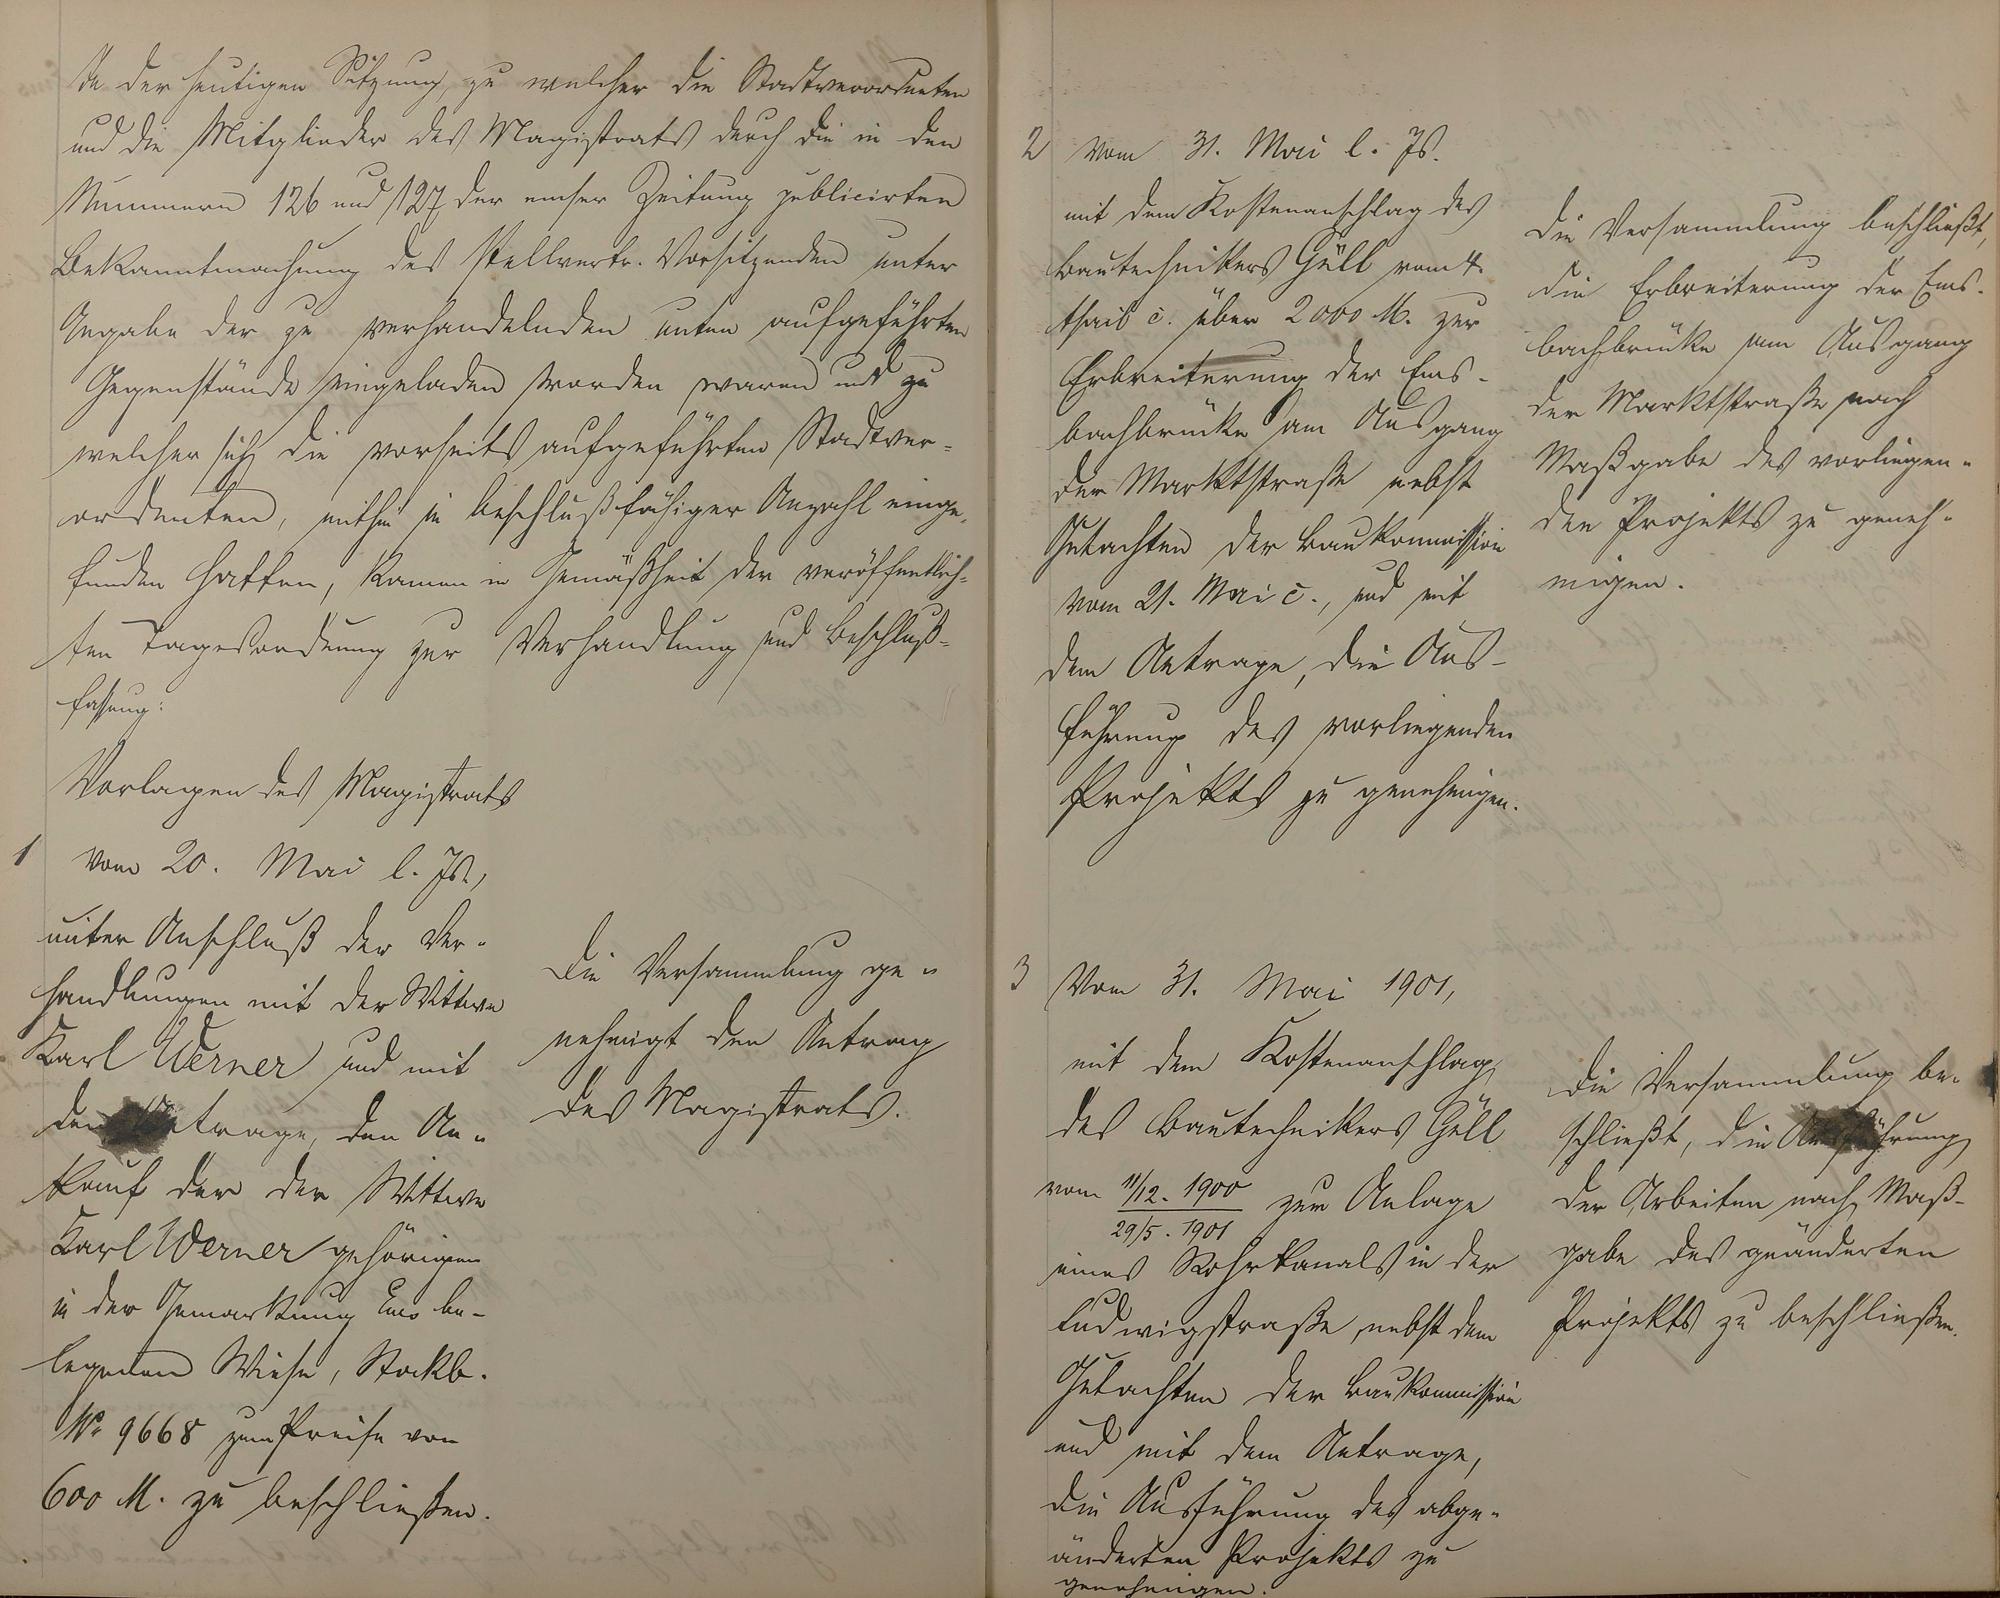 In der heutigen Sitzung, zu welcher die Stadtverordneten
und die Mitglieder des Magistrats durch die in den
Nummern 126 und 127 der emser Zeitung publicirten
Bekanntmachung des stellvertr. Vorsitzenden unter
Angabe der zu verhandelnden unten aufgeführten
Gegenstände eingeladen worden waren und zu
welcher sich die vorseits aufgeführten Stadtver-
ordneten, mithin in beschlußfähiger Anzahl einge-
funden hatten, kamen in Gemäßheit der veröffentlich-
ten Tagesordnung zur Verhandlung und Beschluß-
fassung:
Vorlagen des Magistrats
1 vom 20. Mai l. Js.,
unter Anschluß der Ver-
handlungen mit der Wittwe
Karl Werner und mit
dem Antrage, den An-
kauf der der Wittwe
Karl Werner gehörigen
in der Gemarkung Ems be-
legenen Wiese, Stockb.
No 9668 zum Preise von
600 M. zu beschließen.
Die Versammlung ge-
nehmigt den Antrag
des Magistrats.
2 vom 31. Mai l. Js.
mit dem Kostenanschlag des
Bautechnikers Güll vom 4.
c. über 2000 M. zur
Erbreiterung der Ems-
bachbrücke am Ausgang
der Marktstraße nebst
Gutachten der Baukommission
vom 21. Mai c., und mit
dem Antrage, die Aus-
führung des vorliegenden
Projekts zu genehmigen.
Die Versammlung beschließt,
die Erbreiterung der Ems-
bachbrücke am Ausgang
der Marktstraße nach
Maßgabe des vorliegen-
den Projekts zu geneh-
migen.
3 Vom 31. Mai 1901,
mit dem Kostenanschlag
des Bautechnikers Güll
vom 11/12. 1900 zur Anlage
29/5. 1901
eines Rohrkanals in der
Ludwigstraße, nebst dem
Gutachten der Baukommission
und mit dem Antrage,
die Ausführung des abge-
änderten Projekts zu
genehmigen.
Die Versammlung be-
schließt, die Ausführung
der Arbeiten nach Maß-
gabe des geänderten
Projekts zu beschließen.